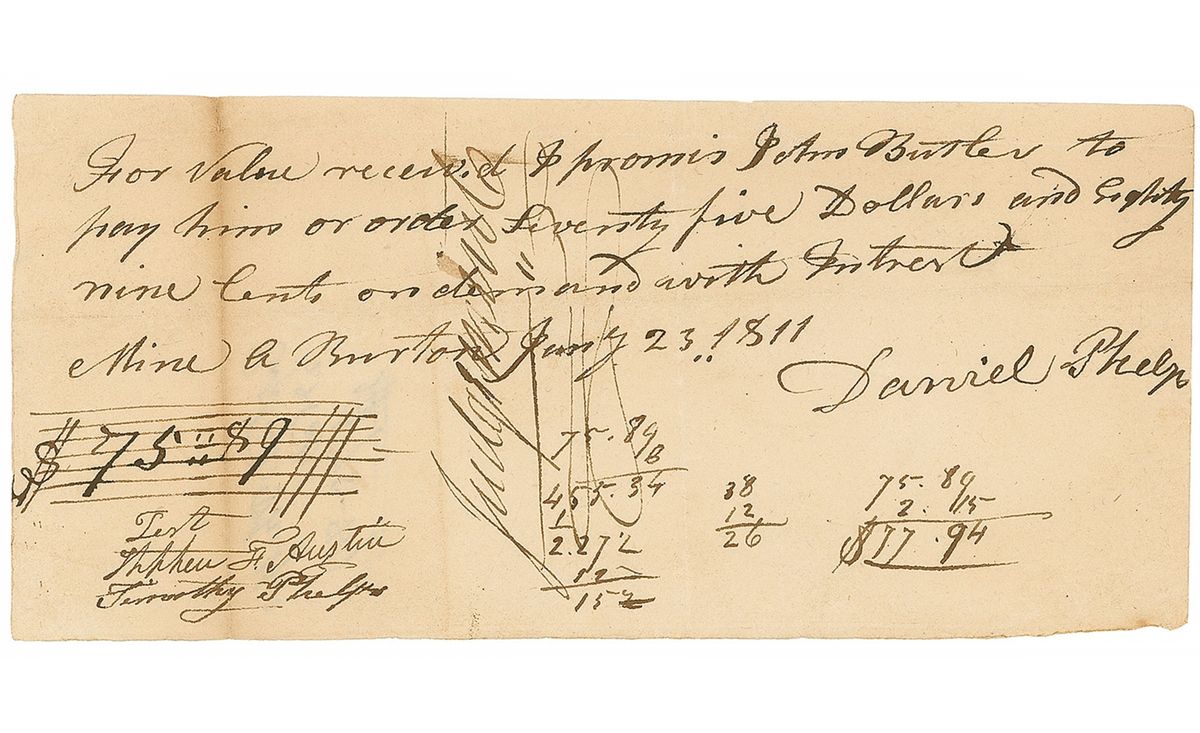 For Value received I promis John Butler to
pay him or order Seventy five Dollars and Eighty
nine Cents on demand with Intrest
Mine a Burton Jany 23.. 1811
Daniel Phelps
$ 75 = 89
Test
Stephen F. Austin
Timothy Phelps
Judgment
75.89
6
455.34
1
2.272
12
152
38
12
26
75.89
2.15
$77.94